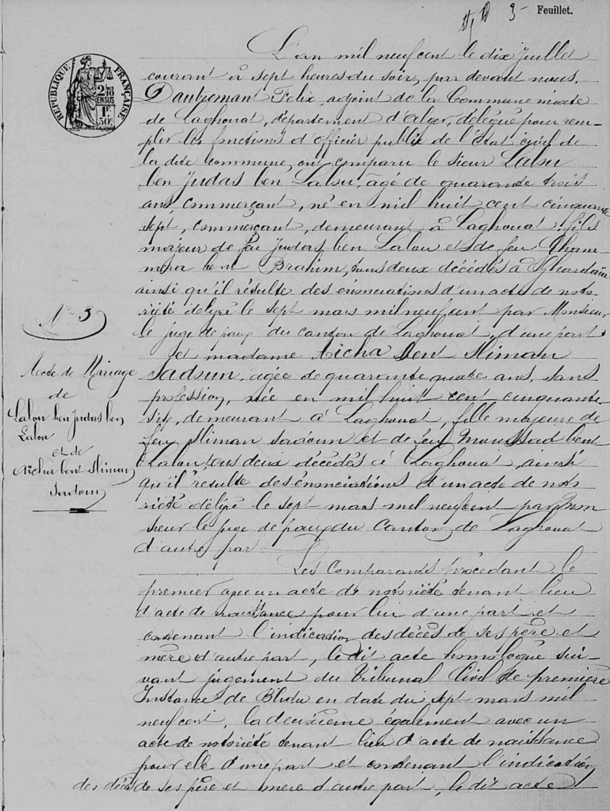 3 Feuillet.
RÉPUBLIQUE FRANÇAISE
L'an mil neuf cent le dix Juillet
courant à sept heures du soir, par devant nous,
Felix, adjoint de la Commune mixte
de Laghouat, département d'Alger, délégué pour rem-
plir les fonctions d'officier public de l'Etat civil de
la dite commune, ont comparu le sieur Lalou
ben Judas ben Lalou, agé de quarante trois
ans, commerçant, né en mil huit cent cinquante
sept, commerçant, demeurant à Laghouat, fils
majeur de feu Judas ben Lalou et de feu
bent Brahim, tous deux décédés à
ainsi qu'il résulte des énonciations d'un acte de noto-
riété délivré le sept mars mil neuf cent par Monsieur
le juge de paix du canton de Laghouat, d'une part
et madame Aicha bent Sliman
Sadoun, agée de quarante quatre ans, sans
profession, née en mil huit cent cinquante
six, demeurant à Laghouat, fille majeure de
feu Sliman Sadoun et de feu bent
Lalou, tous deux décédés à Laghouat, ainsi
qu'il résulte des énonciations d'un acte de noto-
riété délivré le sept mars mil neuf cent par Mon
sieur le juge de paix du Canton de Laghouat
d'autre part
Les Comparants procédant, le
premier avec un acte de notoriété tenant lieu
d'acte de naissance pour lui d'une part et
contenant l'indication des décès de ses père et
mère d'autre part, le dit acte homologué sui-
vant jugement du Tribunal Civil de première
Instance de Blida en date du sept mars mil
neuf cent, la deuxième également avec un
acte de notoriété tenant lieu d'acte de naissance
pour elle d'une part et contenant l'indication
des décès de ses père et mère d'autre part, le dit acte
N° 3
Acte de Mariage
de
Lalou ben Judas ben
Lalou
et de
Aicha bent Sliman
Sadoun